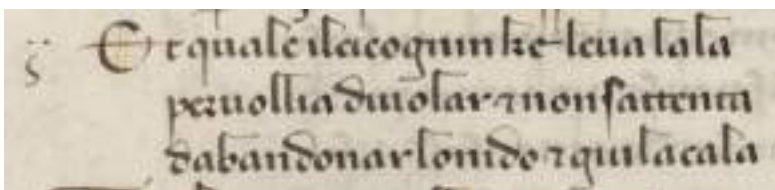 Et quale ilcicognin ke leua lala
per uollia diuolar ⁊ non sattenta
dabandonar lonido ⁊ giu lacala